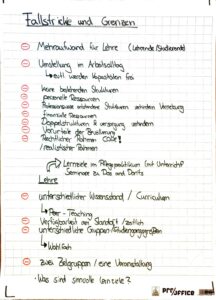 Fallstricke und Grenzen
Mehraufwand für Lehre (Lehrende/Studierende)
Umstellung im Arbeitsalltag
↳ evtl. werden Kapazitäten frei
keine bestehenden Strukturen
personelle Ressourcen
Strukturen verhindern Vernetzung
finanzielle Ressourcen
Doppelstrukturen & Versorgung verhindern
Vorurteile der Bevölkerung
Rechtlicher Rahmen
/realistischer Rahmen
Lernziele im Pflegepraktikum (mit Unterricht)
Seminare zu Dos and Don'ts
Lehre
unterschiedlicher Wissensstand / Curriculum
↳ Peer-Teaching
Verfügbarkeit am Standort / zeitlich
unterschiedliche Gruppen/Studiengangsgrößen
↳ Wahlfach
zwei Zielgruppen / eine Veranstaltung
• Was sind sinnvolle Lernziele?
OFFICE